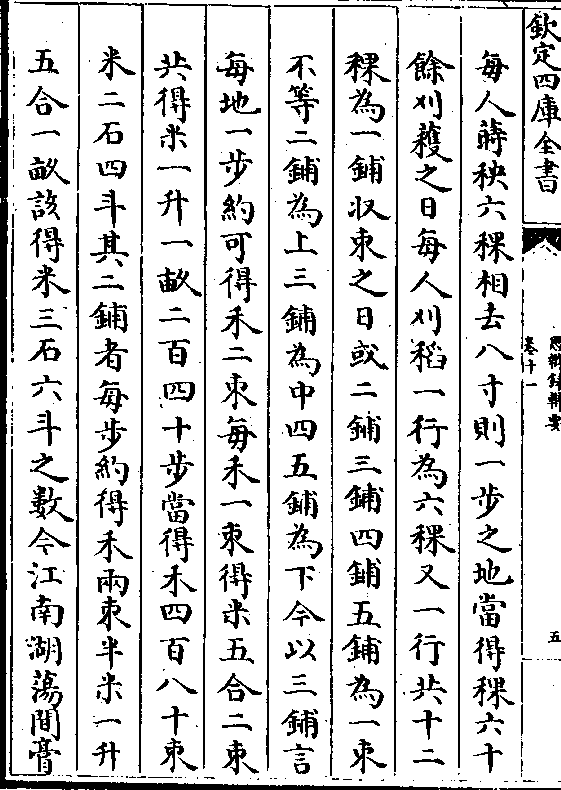 欽定四庫全書
思辨錄輯要
卷十一
五
每人蒔秧六稞相去八寸則一步之地當得稞六十
餘刈穫之日每人刈稻一行為六稞又一行共十二
稞為一鋪収束之日或二鋪三鋪四鋪五鋪為一束
不等二鋪為上三鋪為中四五鋪為下今以三鋪言
每地一步約可得禾二束每禾一束得米五合二束
共得米一升一畝二百四十步當得禾四百八十束
米二石四斗其二鋪者每步約得禾兩束半米一升
五合一畝該得米三石六斗之數今江南湖蕩間膏